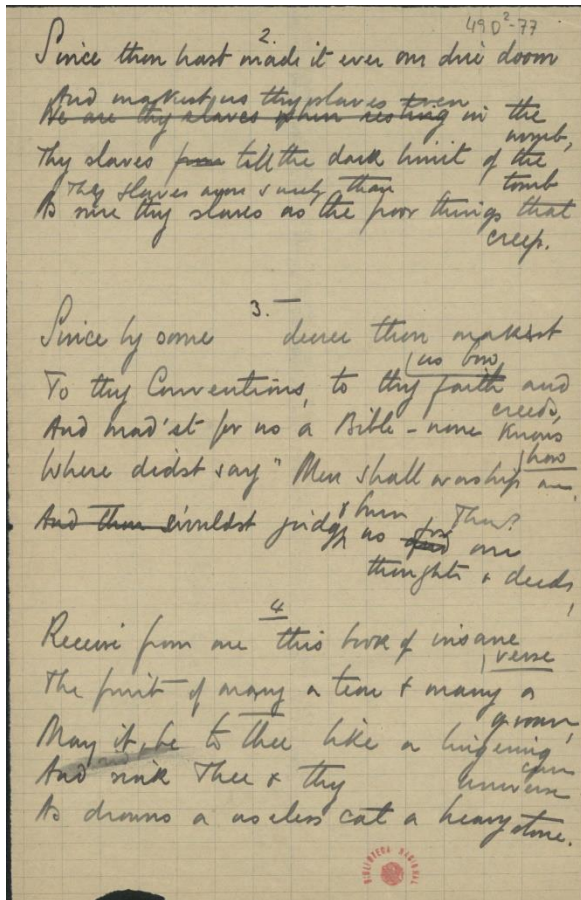 49D²-77
2.
Since thou hast made it ever our due doom
And makest us thy slaves even
We are thy slaves when resting in the
womb,
Thy slaves from till the dark limit of the
tomb
Thy slaves more surely than
As sure thy slaves as the poor things that
creep.
3.
Since by some decree thou makest
us bow
To thy Conventions, to thy faith and
creeds,
And mad'st for us a Bible - none knows
how
Where didst say "Men shall worship me
Thou?
And thou wouldst judge & burn us for our
thoughts & deeds,
4
Receive from me this book of insane
verse
The fruit of many a tear & many a
groan,
May it be to thee like a lingering
curse
And sink Thee & thy universe
As drowns a useless cat a heavy stone.
BIBLIOTECA NACIONAL